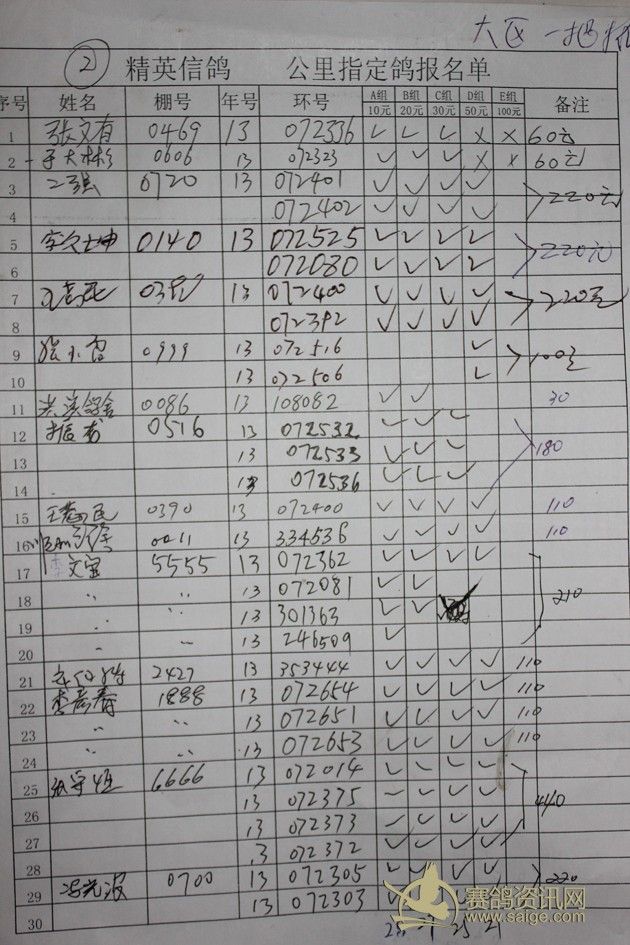 大区
② 精英信鸽 公里指定鸽报名单
序号 姓名 棚号 年号 环号 A组 10元 B组 20元 C组 30元 D组 50元 E组 100元 备注
1 张文有 0469 13 072336 ✓ ✓ ✓ × × 60元
2 于大彬 0606 13 072323 ✓ ✓ ✓ × × 60元
3 王强 0720 13 072401 ✓ ✓ ✓ ✓ 220元
4 072402 ✓ ✓ ✓ ✓
5 0140 13 072525 ✓ ✓ ✓ ✓ 220元
6 072080 ✓ ✓ ✓ ✓
7 13 072400 ✓ ✓ ✓ ✓ 220元
8 072392 ✓ ✓ ✓ ✓
9 0999 13 072516 ✓ 100元
10 13 072506 ✓
11 0086 13 108082 ✓ ✓ 30
12 0516 13 072532 ✓ ✓ ✓ 180
13 13 072533 ✓ ✓ ✓
14 13 072536 ✓ ✓ ✓
15 0390 13 072400 ✓ ✓ ✓ ✓ 110
16 0011 13 334536 ✓ ✓ ✓ ✓ 110
17 李文宝 5555 13 072362 ✓ ✓ ✓ ✓ 210
18 〃 〃 13 072081 ✓ ✓
19 13 301363 ✓ ✓
20 13 246509 ✓
21 2427 13 353444 ✓ ✓ ✓ ✓ 110
22 李彦春 1888 13 072654 ✓ ✓ ✓ ✓ 110
23 〃 〃 13 072651 ✓ ✓ ✓ ✓ 110
24 〃 〃 13 072653 ✓ ✓ ✓ ✓ 110
25 张宇恒 6666 13 072014 ✓ ✓ ✓ ✓ 440
26 13 072375 ✓ ✓ ✓ ✓
27 13 072373 ✓ ✓ ✓ ✓
28 13 072372 ✓ ✓ ✓ ✓
29 冯光波 0700 13 072305 ✓ ✓ ✓ ✓ 220
30 13 072303 ✓
赛鸽资讯网
www.saige.com